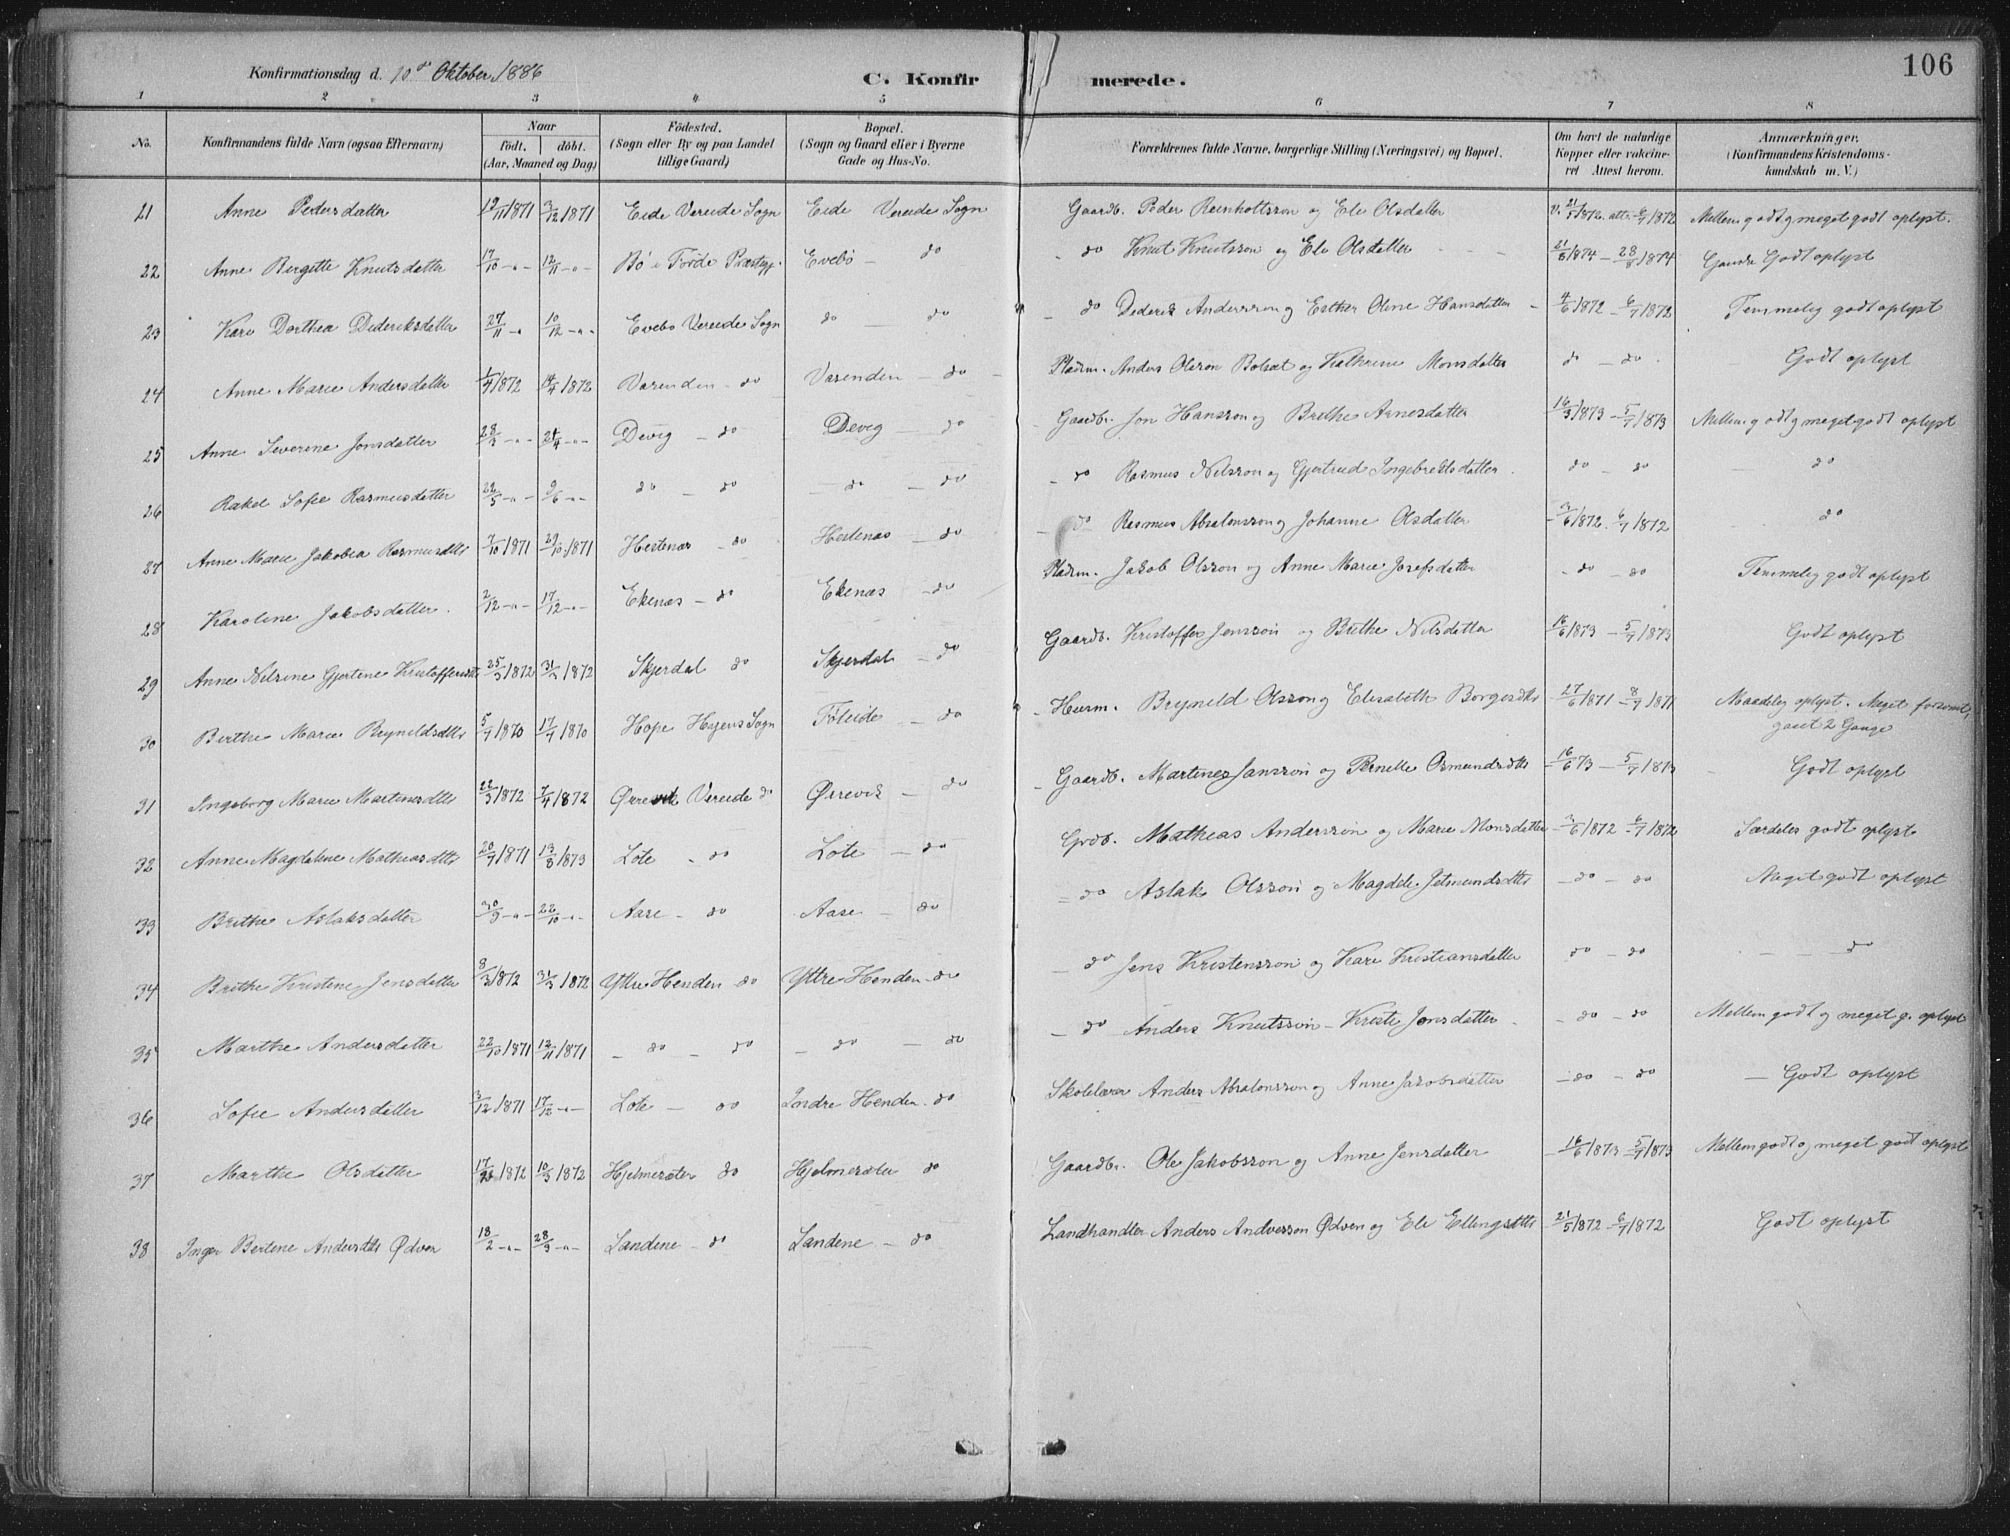 106
Konfirmationsdag d. 10de Oktober 1886
C. Konfirmerede.
1 2 3 4 5 6 7 8
No. Konfirmandens fulde Navn (ogsaa Efternavn) Naar födt. döbt. (Aar, Maaned og Dag) Födested. (Sogn eller By og paa Landet tillige Gaard) Bopæl. (Sogn og Gaard eller i Byerne Gade og Hus-No. Forældrenes fulde Navne, borgerlige Stilling (Næringsvei) og Bopæl. Om havt de naturlige Kopper eller vakcineret Attest herom. Anmærkninger. (Konfirmandens Kristendomskundskab m. V.)
21 Anne Pedersdatter 19/11 1871 3/12 1871 Eide Vereide Sogn Eide Vereide Sogn Gaardb. Peder Reinholtsson og Eli Olsdatter v. 21/5 1872 att. 6/7 1872 Mellem godt og meget godt oplyst.
22 Anne Bergitte Knutsdatter 17/10 -"- 12/11 -"- Bö i Förde Præstegj. Evebö - do - do Knut Knutsson og Eli Olsdatter 21/8 1874 - 28/8 1874 Ganske Godt oplyst
23 Kari Dorthea Dideriksdatter 27/11 -" 10/12 -"- Evebö Vereide Sogn do - do - do Diderik Andersson og Esther Oline Hansdatter - 4/6 1872 - 6/7 1872 Temmelig godt oplyst
24 Anne Marie Andersdatter 1/4 1872 14/4 1872 Varenden - do Varenden - do - Pladsm. Anders Olsson Bolsæt og Kathrine Monsdatter do - do Godt oplyst
25 Anne Severine Jonsdatter 28/3 -"- 21/4 -"- Devig - do Devig - do Gaardbr. Jon Hansson og Brithe Arnesdatter 16/3 1873 - 5/7 1873 Mellem godt og meget godt oplyst
26 Rakel Sofie Rasmusdatter 22/5 -"- 9/6 -"- do - do - do - do - do Rasmus Nilsson og Gjertrud Ingebretsdatter do - do do
27 Anne Marie Jakobia Rasmusdtr 7/10 1871 29/10 1871 Hestenæs - do Hestenæs - do - do Rasmus Absalonsson og Johanne Olsdatter - 3/6 1872. 6/7 1872 do
28 Karoline Jakobsdatter. 2/12 -"- 17/12 -"- Ekenæs - do Ekenæs - do Pladsm. Jakob Olsson og Anne Marie Josefsdatter - do - do Temmelig godt oplyst
29 Anne Nilsine Gjertine Kristoffersdtr 25/3 1872 31/3 1872 Skjerdal do Skjerdal - do Gaardb. Kristoffer Jensson og Brithe Nilsdatter 16/6 1873 - 5/7 1873 Godt oplyst
30 Berthe Marie Brynildsdtr 5/7 1870 17/7 1870 Hope Hyens Sogn Föleide - do - Huusm. Brynild Olsson og Elisabeth Borgesdtr - 27/6 1871 - 8/7 1871 Maadelig oplyst. Meget forsömt,
gaaet 2 Gange
31 Ingeborg Marie Martinesdtr 22/3 1872 7/4 1872 Örrevik Vereide do Örrevik - do - Gaardb. Martines Jansson og Pernille Osmundsdtr - 16/6 73 - 5/7 1873 Godt oplyst
32 Anne Magdalene Mathiasdtr 20/7 1871 13/8 1873 Lote - do Lote - do Grdb. Mathias Andersson og Marie Monsdatter - 3/6 1872 - 6/7 1872 Særdeles godt oplyst
33 Brithe Aslaksdatter 30/9 -"- 22/10 -"- Aase - do Aase - do - do Aslak Olsson og Magdeli Jetmundsdtr - do - do Meget godt oplyst
34 Brithe Kristine Jensdatter 8/3 1872 31/3 1872 Yttre Henden - do Yttre Henden - do - do Jens Kristensson og Kari Kristiansdatter do - do - - do
35 Marthe Andersdatter 22/10 1871 12/11 1871 - do - do - do - do - do Anders Knutsson - Kristi Jonsdatter - - do - do Mellem godt og meget g. oplyst
36 Sofie Andersdatter 3/12 1871 17/12 -"- Lote - do Indre Henden - do Skolelærer Anders Absalonsson og Anne Jakobsdatter - do - do - Godt oplyst
37 Marthe Olsdatter 17/2 1872 10/3 1872 Hjelmesæter do Hjelmesæter do Gaardbr. Ole Jakobsson og Anne Jensdatter - 16/6 1873 5/7 1873 Mellem godt og meget godt oplyst
38 Inger Bertine Andersdtr Ödven 18/2 -"- 28/3 -"- Sandene - do Sandene - do Landhandler Anders Andersson Ödven og Eli Ellingsdtr 21/5 1872 - 6/7 1872 Godt oplyst